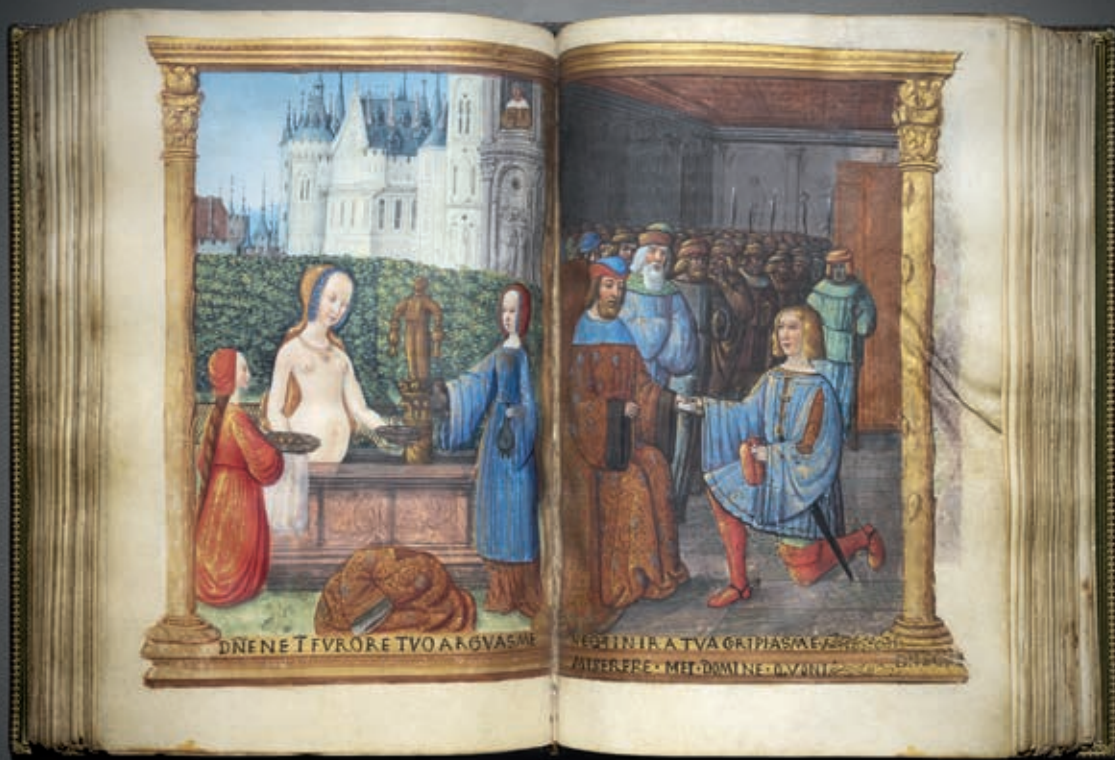 DÑE NE T FVRORE TVO ARGVAS ME
NEQ3 IN IRA TVA CORIPIAS ME
MISERERE · MEI · DOMINE · QVONI